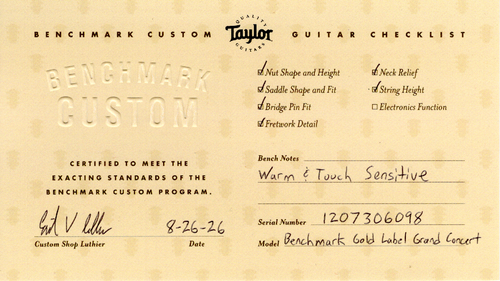 BENCHMARK CUSTOM QUALITY Taylor GUITARS GUITAR CHECKLIST
BENCHMARK
CUSTOM
Nut Shape and Height
Saddle Shape and Fit
Bridge Pin Fit
Fretwork Detail
Neck Relief
String Height
Electronics Function
CERTIFIED TO MEET THE
EXACTING STANDARDS OF THE
BENCHMARK CUSTOM PROGRAM.
8-26-26
Custom Shop Luthier Date
Bench Notes
Warm & Touch Sensitive
Serial Number 1207306098
Model Benchmark Gold Label Grand Concert